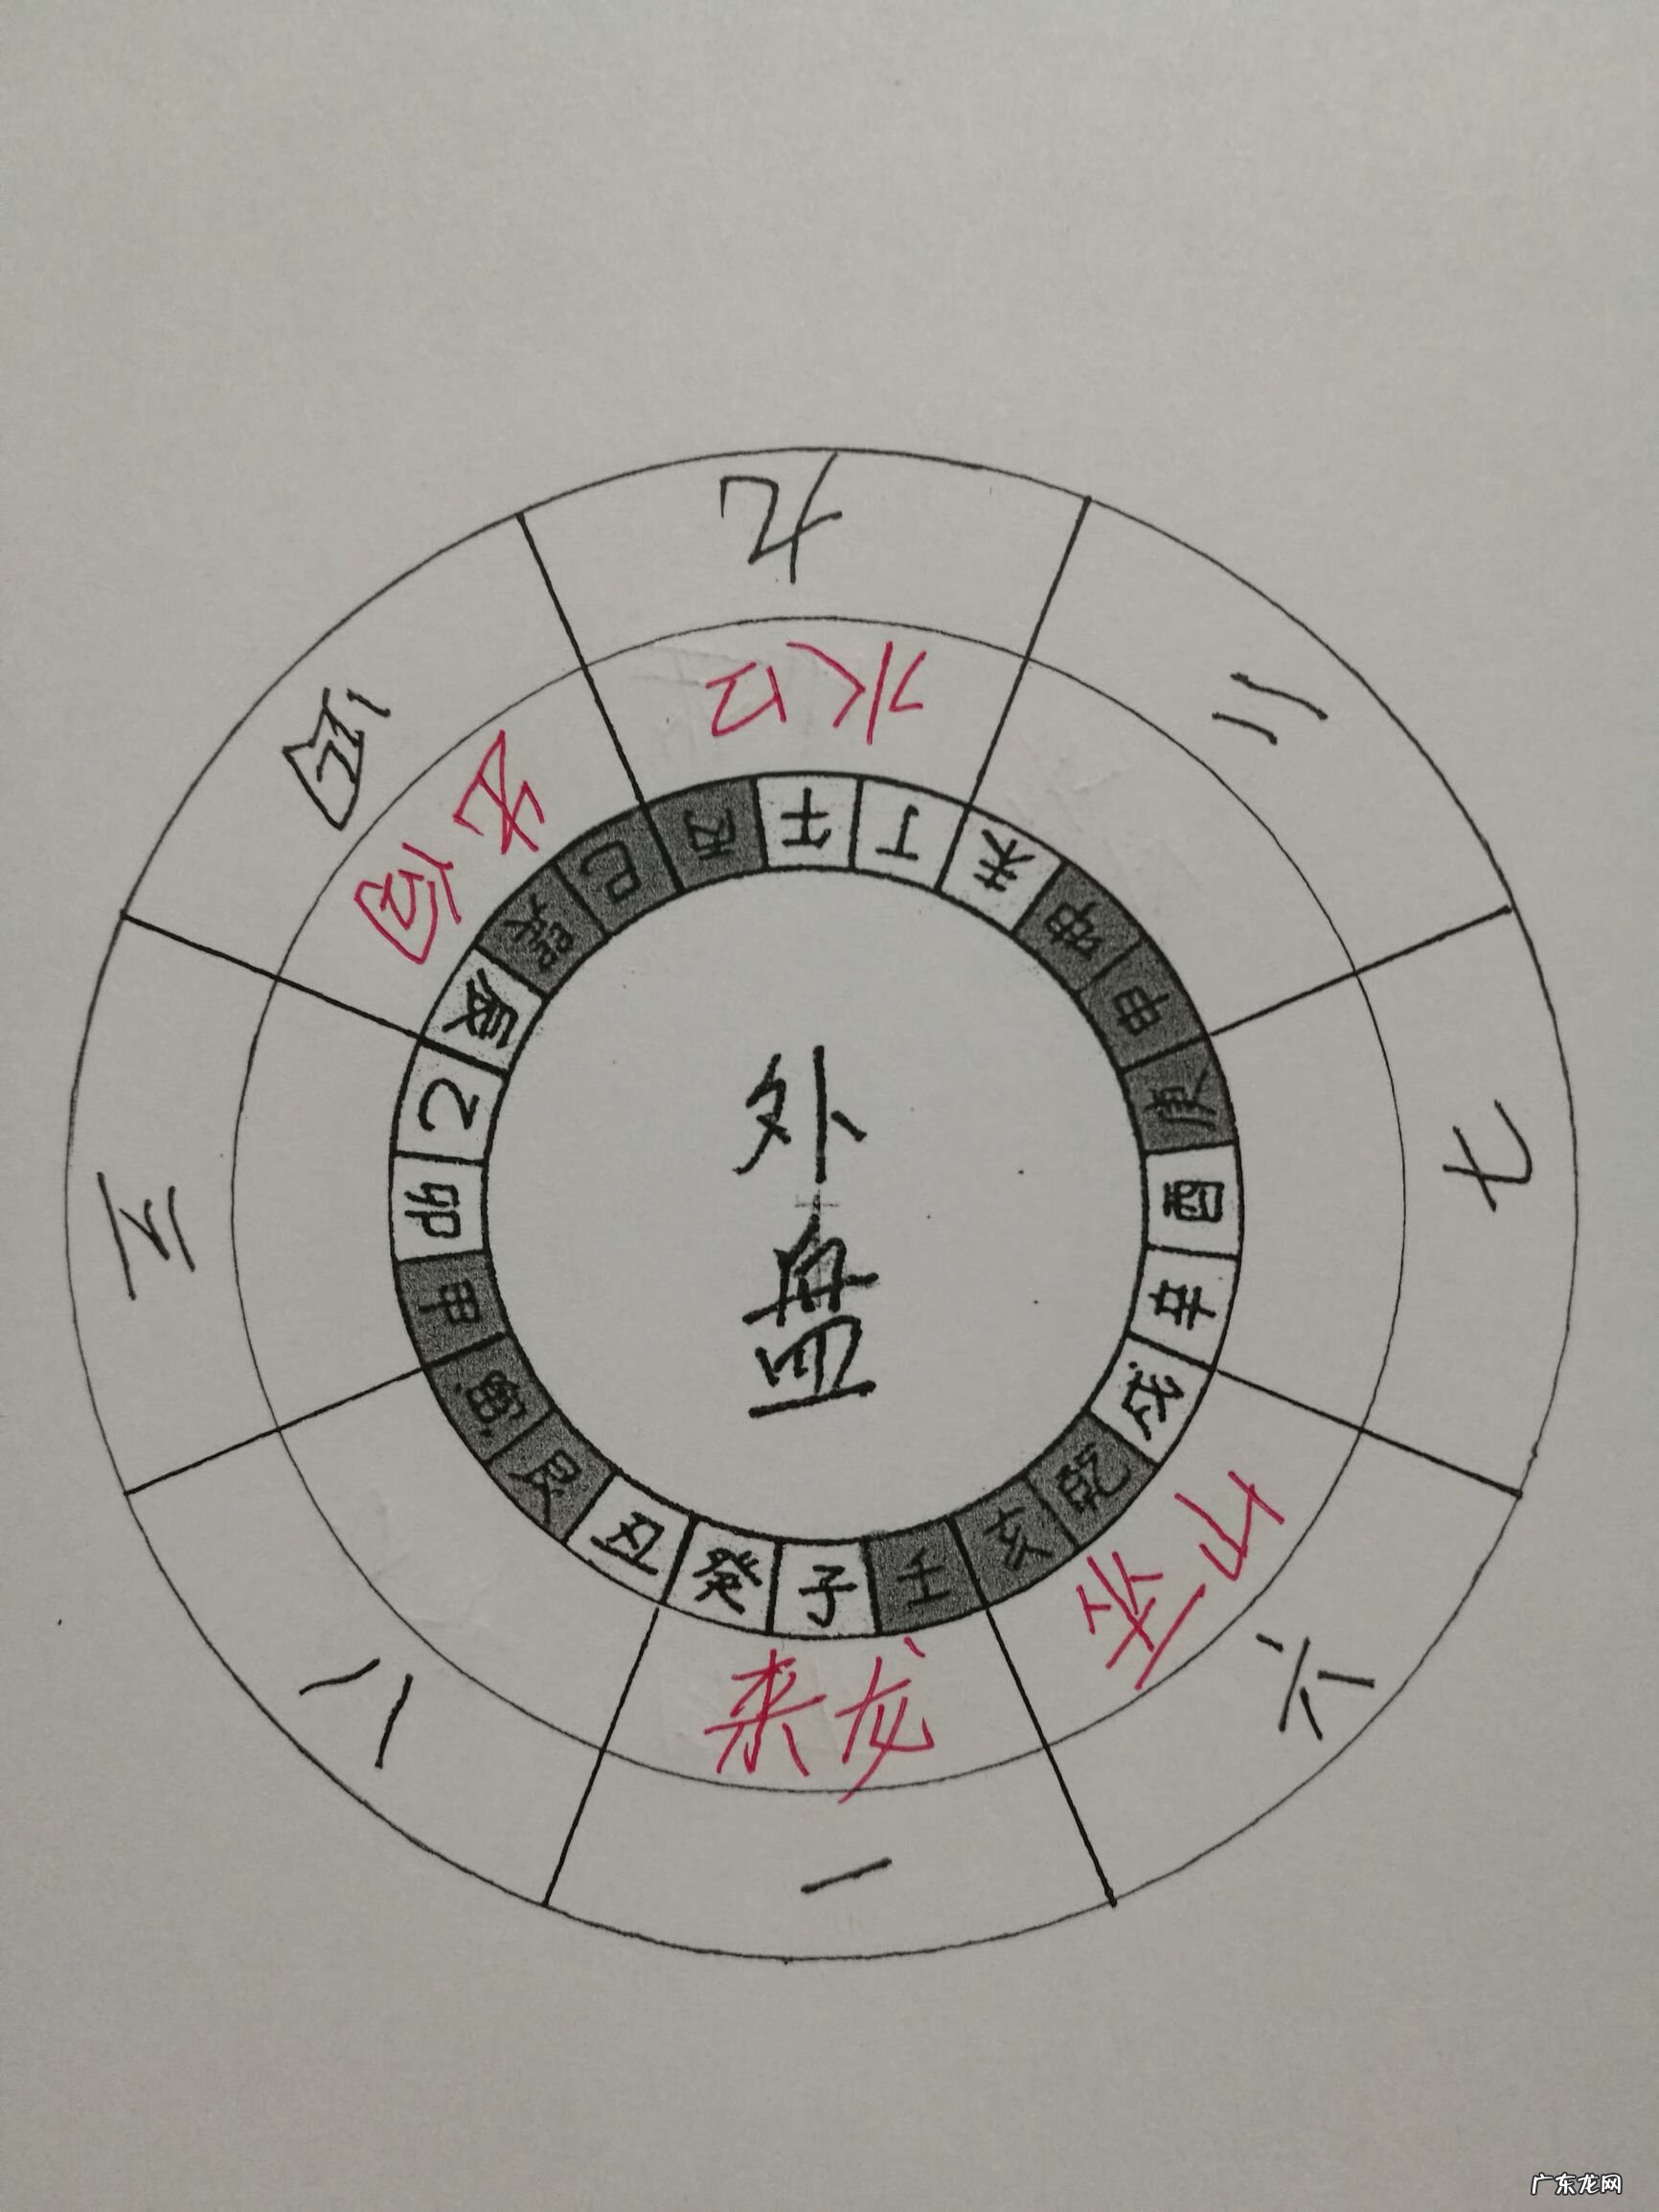 九
二
七
六
一
八
三
四
水口
坐山
来龙
向
午
丁
未
坤
申
庚
酉
辛
戌
乾
亥
壬
子
癸
丑
艮
寅
甲
卯
乙
辰
巽
巳
丙
外
盘
广东龙网